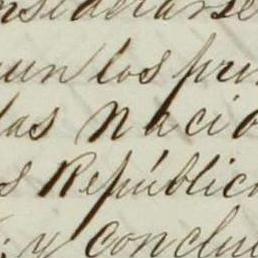 nsiderarse
un los pri
las nacio
s República
; y conclui